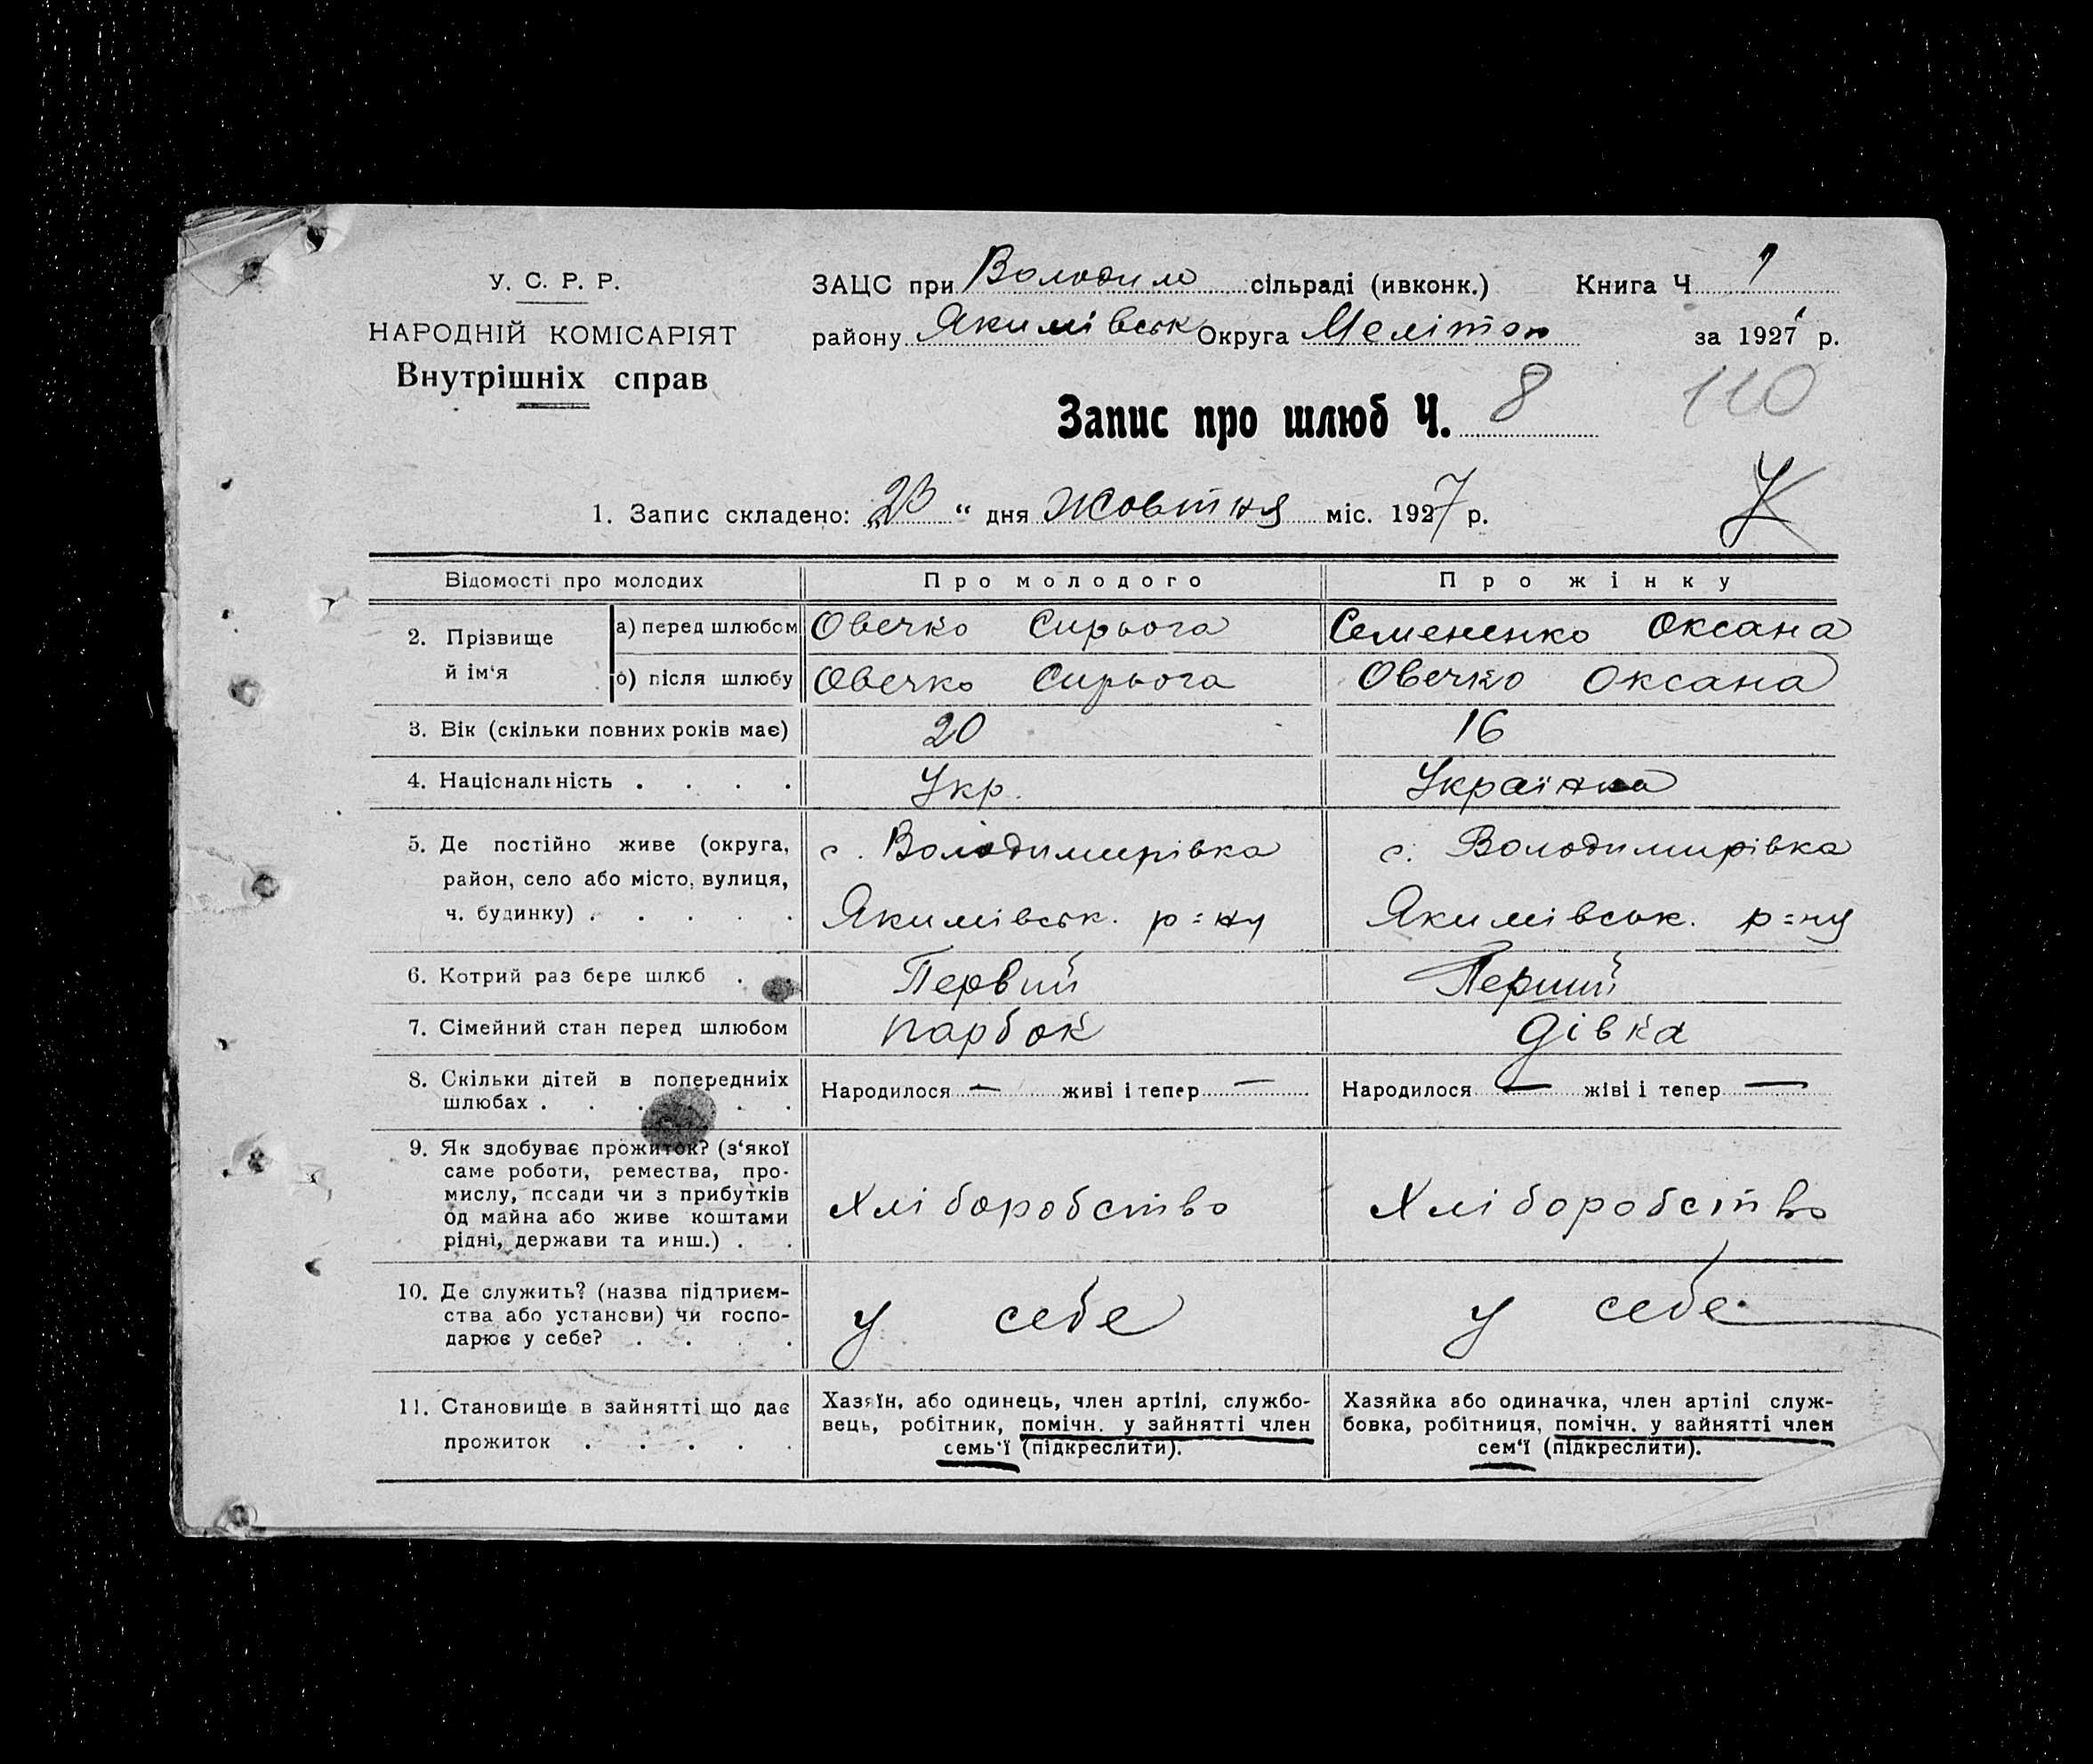 У. С. Р. Р.
НАРОДНІЙ КОМІСАРІЯТ
Внутрішніх справ
ЗАЦС при Володим сільраді (ивконк.) Книга Ч 1
району Якимівськ Округа Меліто за 1927 р.
Запис про шлюб Ч. 8 110
1. Запис складено: „23 “ дня Жовтня міс. 1927 р.
Відомості про молодих Про молодого Про жінку
2. Прізвище й ім‘я
а) перед шлюбом Овечко Сирьога Семененко Оксана
б) після шлюбу Овечко Сирьога Овечко Оксана
3. Вік (скільки повних років має) 20 16
4. Національність . . . . Укр. Українка
5. Де постійно живе (округа, с. Володимирівка с. Володимирівка
район, село або місто, вулиця,
ч. будинку) . . . . . Якимівськ. р=ну Якимівськ. р=ну
6. Котрий раз бере шлюб . Первий Перший
7. Сімейний стан перед шлюбом парбок дівка
8. Скільки дітей в попередниіх Народилося — живі і тепер — Народилося — жіві і тепер —
шлюбах . . . . . .
9. Як здобуває прожиток? (з‘якої
саме роботи, ремества, про-
мислу, посади чи з прибутків Хліборобство Хліборобство
од майна або живе коштами
рідні, держави та инш.) . .
10. Де служить? (назва підприєм-
ства або установи) чи госпо- у себе у себе
дарює у себе? . . . .
11. Становище в зайнятті що дає
прожиток . . . . .
Хазяїн, або одинець, член артілі, службо-
вець, робітник, помічн. у зайнятті член
семь‘ї (підкреслити).
Хазяйка або одиначка, член артілі служ-
бовка, робітниця, помічн. у зайнятті член
сем‘ї (підкреслити).